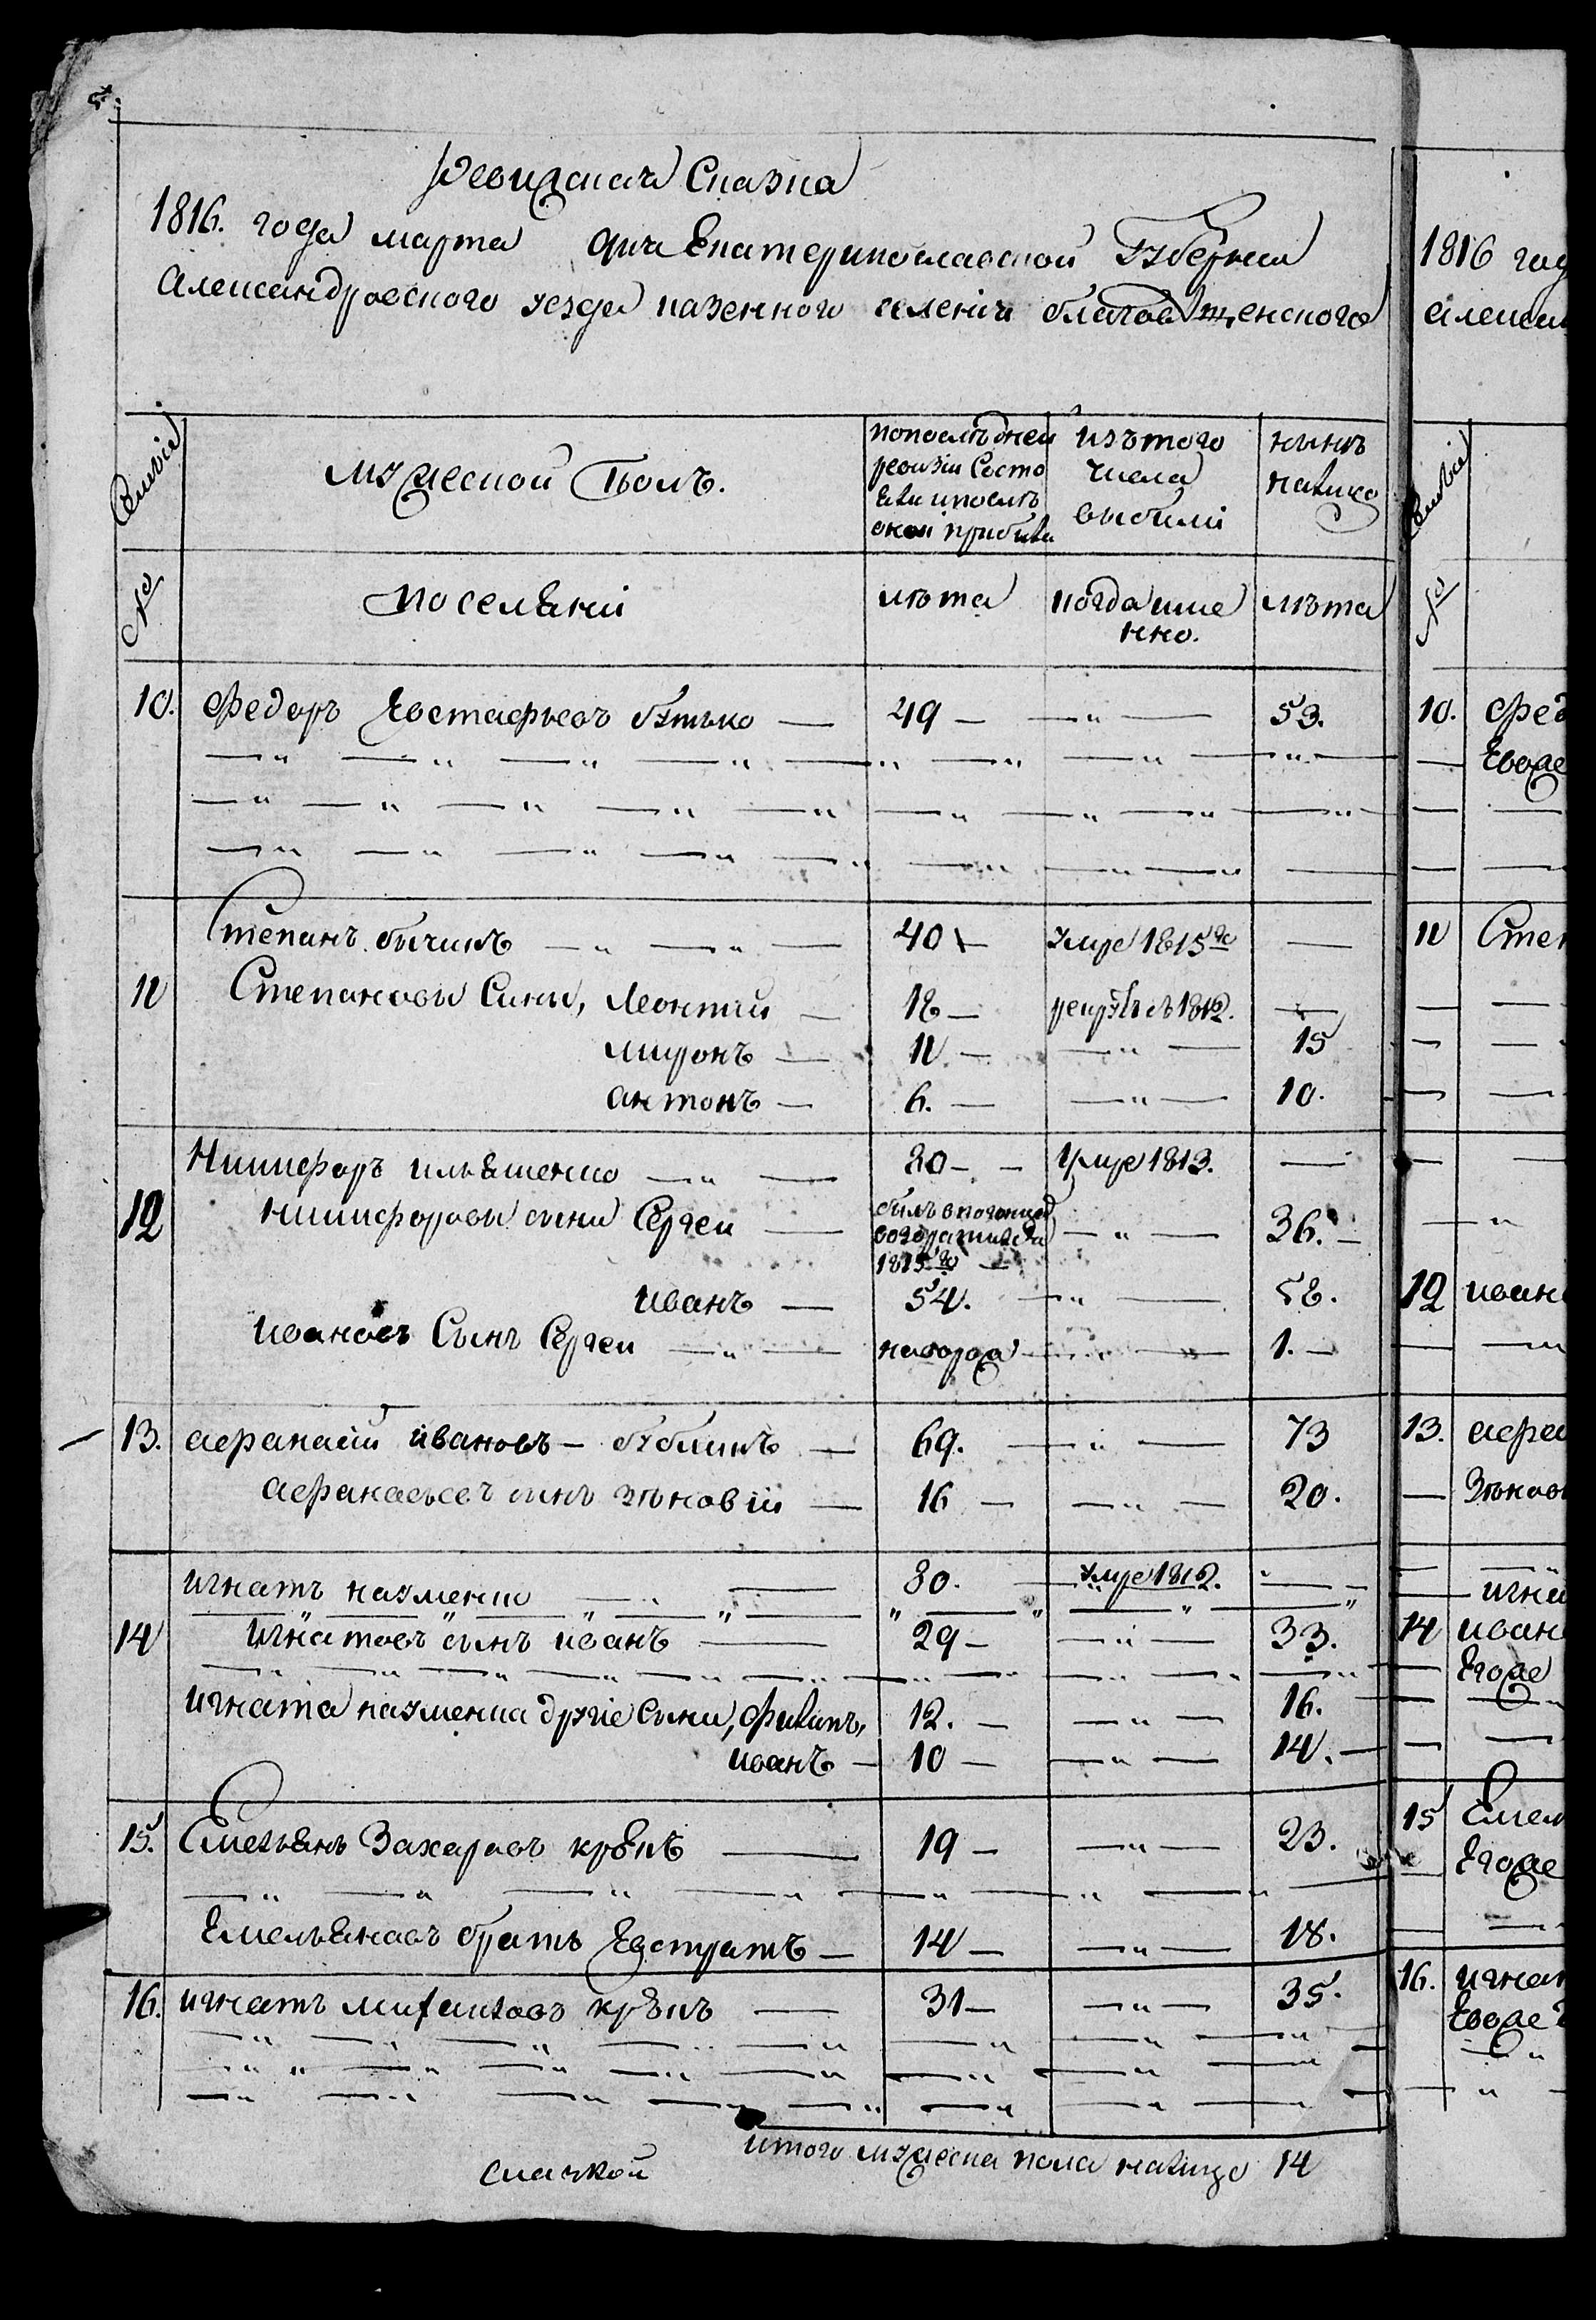 Ревизская Сказка
1816. года марта дня Екатеринославской Губернии
Александровского уезда казенного селения благовещенского
Семьи
мужеской полъ.
попослѣдней ревизіи Состо яли ипослѣ оной прибыли
изътого числа выбыли
нынѣ налицо
№
поселяни
лѣта
когда име нно.
лѣта
10. Федоръ Евстафьевъ бутько — 49 — — " — 53.
Степанъ бычикъ — " — " — 40 — умре 1815го —
11 Степановы Сины, Леонтий — 18 — рекрутъ въ 1812. —
миронъ — 11. — — " — 15
антонъ — 6. — — " — 10.
Никифоръ ильяшенко — " — 80 — — умре 1813. —
12 никифоровы сыни Сергеи — былъ впогонцах возвратился 1815го — — " — 36. —
иванъ — 54. — " — 58.
ивановъ Сынъ Сергеи — " — новорож — 1. —
13. афанасій ивановъ — бубликъ — 69. — " — 73
афанасьевъ сынъ зѣновій — 16 — — " — 20.
игнатъ науменко — 80. — умре 1812. —
14 игнатовъ сынъ иванъ — 29 — — " — 33.
игната науменка другіе Сыни, филипъ, 12. — — " — 16.
иванъ — 10 — — " — 14. —
15. Емельянъ Захаровъ — 19 — — " — 23.
Емельяновъ братъ Евстратъ — 14 — — " — 18.
16. игнатъ михаиловъ — 31 — — " — 35.
итого мужеска пола налицо 14
1816 год
алексан
Семьи
№
10. Фед
11 Степ
12 иван
13. афа
Зѣнов
игна
14 иван
Егоже
15 Емел
Егоже
16. игнат